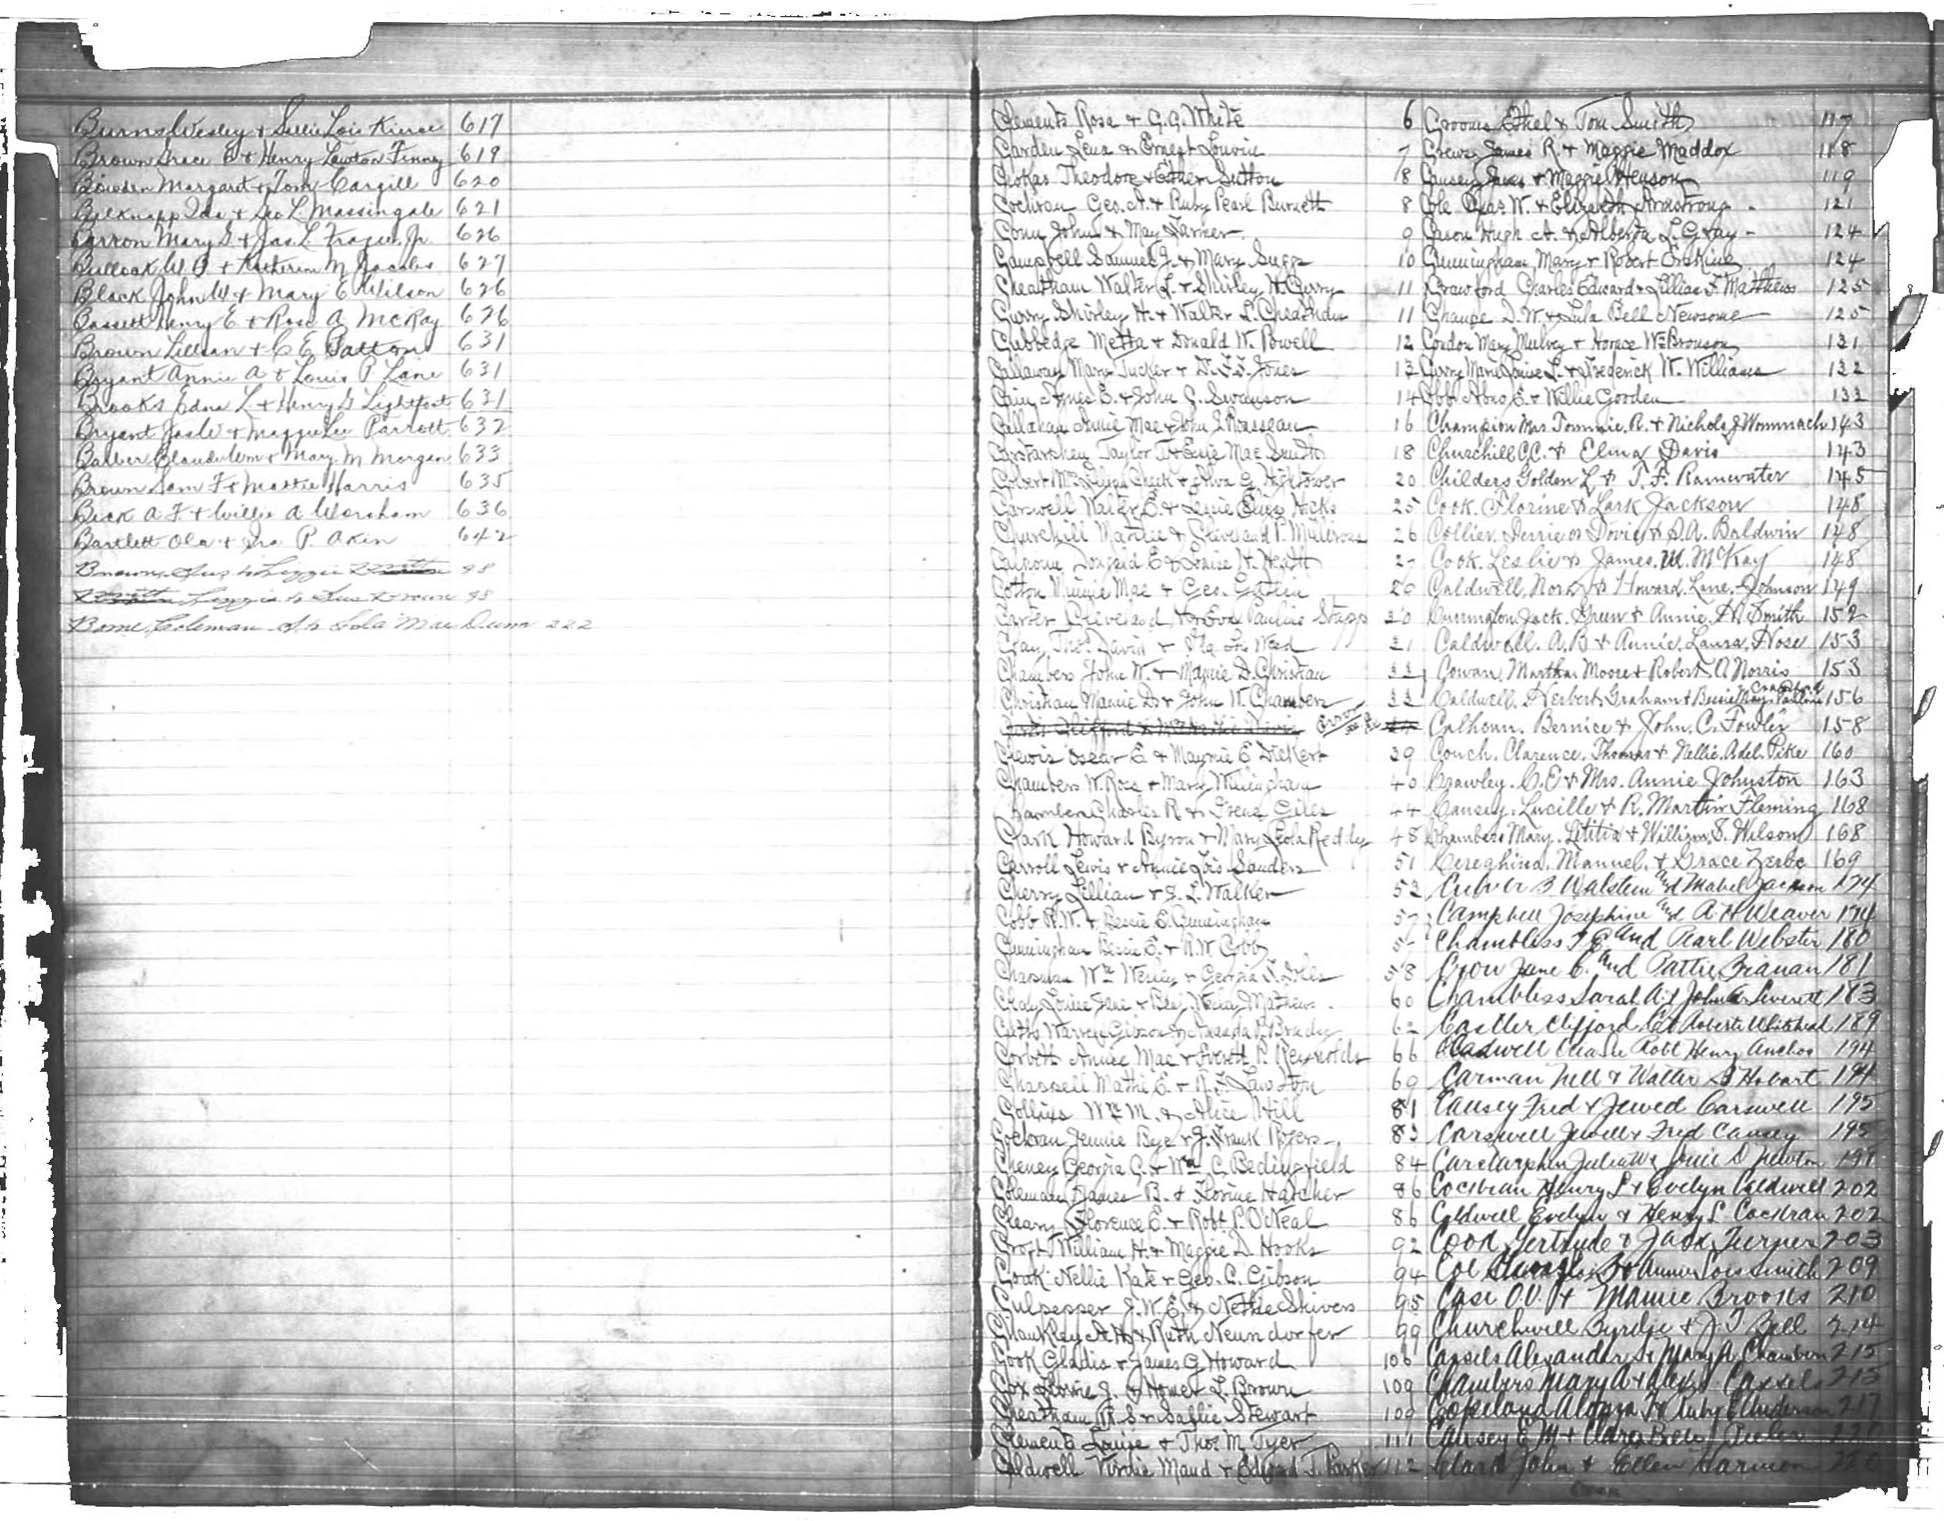 Burns Wesley & Sallie Lois Kierce 617
Brown Grace B & Henry Lawton Finney 619
Bowden Margaret & Tom Cargill 620
Belknapp Ida & Leo L. Massingale 621
Barron Mary S. & Jas. L. Frazier, Jr. 626
Bullock W B & Katherine M Jacobs 627
Black John W & Mary E Wilson 626
Bassett Henry E & Rosa A McKay 626
Brown Lillian & C E Patton 631
Bryant Annie A & Louis P Lane 631
Brooks Edna L & Henry G Lightfoot 631
Bryant Jasle & Maggie Lee Parrott 632
Barber Claude Wm & Mary M Morgan 633
Brown Sam F & Mattie Harris 635
Beck A F & Willie A Worsham 636
Bartlett Ola & Ira P. Akin 642
Brown, Gus to Lizzie 98
Lizzie to Gus Brown 98
Coleman to Lola Mae Dunn 222
Clements Rosa & G.G. White 6
Carden Lena & Ernest Louvin 7
Ceokas Theodore & Esther Sutton 8
Cochran Geo. A. & Ruby Pearl Burnett 8
Conn John & May Farmer 9
Campbell Samuel J. & Mary Suggs 10
Cheatham Walter L. & Shirley H. Curry 11
Curry Shirley H. & Walter L. Cheatham 11
Cubbedge Metta & Donald W. Powell 12
Callaway Mary Tucker & D. F. Jones 13
Cain Agnes E. & John J. Swanson 14
Callahan Annie Mae & John J. Rousseau 16
Carstarphen Taylor T. & Essie Mae Smith 18
Colbert & Alva G. Hightower 20
Carswell Walter E. & Hicks 25
Churchill Mattie & Cleveland P. Mullins 26
Calhoun E & Louise H. Heath
Cotton Minnie Mae & Geo. G. Stein
Carter Cleveland & Eva Pauline Stapp 30
Clay Thos. David & Ila Weed 31
Chambers John W. & Mamie D. Christian 33
Christian Mamie D. & John W. Chambers 33
Clifford &
Clewis Oscar E. & Maymie E. Dickert 39
Chambers W. Ross & Mary Willingham 40
Charles R. & Irene Giles 44
Clark Howard Byron & Mary Leola Redley 48
Carroll Lewis & Annie Lois Sanders 51
Cherry Lillian & S. L. Walker 53
Cobb R.W. & Bessie E. Cunningham 57
Cunningham Bessie E. & R.W. Cobb
Chapman Wm Wesley & Georgia 58
Clay Louise Jane & Mathews 60
Warren & Brady 62
Corbett Annie Mae & Everett P. Reynolds 66
Chappell Mattie E. & R. F. Lawton 69
Collins Wm M. & Alice Hill 81
Cochran Jennie Bye & J. Frank Rogers 83
Cheney Georgia C. & Wm C. Bedingfield 84
Coleman James B. & Florine Hatcher 86
Cleary Florence E. & Robt P. O'Neal 86
Croft William H. & Maggie D. Hooks 92
Cook Nellie Kate & Geo. C. Gibson 94
Culpepper J.W.E. & Nettie Shivers 95
Chankley A.H. & Ruth Neundorfer 99
Cook Gladis & James G. Howard 106
Cox Florrie J. & Homer L. Brown 109
Cheatham R. S. & Sallie Stewart 109
Clements Louise & Thos M. Tyer 111
Caldwell Virdie Maud & Edward J. Parker 112
Crooms Ethel & Tom Smith 117
Crews James R. & Maggie Maddox 118
Causey James & Maggie Henson 119
Cole Chas. W. & Elizabeth Armstrong 121
Cason Hugh A. & Alberta L. Gray 124
Cunningham Mary & Robert Erskine 124
Crawford Charles Edward & Lillian F. Matthews 125
Chaupe D. W. & Lula Bell Newsome 125
Condon Mary Mulvey & Horace Wm Bronson 131
Curry Marie Louise L. & Frederick W. Williams 132
Cobb Abus E. & Willie Gooden 133
Champion Mrs Tommie R. & Nichols J Wommach 143
Churchill C.C. & Elma Davis 143
Childers Golden L. & T. F. Rainwater 145
Cook. Florine & Lark Jackson 148
Collier. Dovie & S.A. Baldwin 148
Cook. Leslie & James. W. McKay 148
Caldwell, Nora & Howard Lane Johnson 149
Cunnington Jack. Green & Annie H. Smith 152
Caldwell. A.B & Annie. Laura Hose 153
Cowan, Martha Moore & Robert A Norris 153
Caldwell. Herbert Graham & Bessie May Pauline Crawford 156
Calhoun. Bernice & John. C. Fowler 158
Couch. Clarence. Thomas & Nellie. Adel. Pike 160
Crawley. C.E & Mrs. Annie Johnston 163
Causey. Lucille & R. Martin Fleming 168
Chambers Mary. Letitia & William. S. Wilson 168
Cereghina. Manuel. & Grace Zerbe 169
Culver B Walstein and Mabel Jackson 174
Campbell Josephine and A. H Weaver 174
Chambliss T E and Pearl Webster 180
Crow June C. and Pattie Branan 181
Chambliss Sarah A & John A Leverett 183
Castler Clifford C & Roberta Whitehead 189
Cladwell Robt Henry Anchos 194
Carman Nell & Walter S Hobart 194
Causey Fred & Jewel Carswell 195
Carswell Jewell & Fred Causey 195
Carstarphen Julia W & Louie D Newton 199
Cochran Henry L & Evelyn Caldwell 202
Caldwell Evelyn & Henry L Cochran 202
Cook Gertrude & Jack Turner 203
Coe & Annie Lois Smith 209
Case O.V. & Mamie Brooks 210
Churchwell Byrdie & J. T Bell 214
Cassels Alexander S & Mary A. Chambers 215
Chambers Mary A & Alex S Cassels 215
Copeland Alonza F & Ruby E Anderson 217
Causey E M & Clara Belle 220
Clark John & Ellen Harmon 220